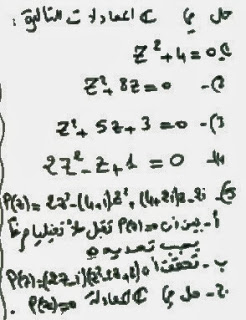 حل في C المعادلات التالية:
z² + 4 = 0 -1
z² + 8z = 0 -2
z² + 5z + 3 = 0 -3
2z² - z + 1 = 0 -4
P(z) = 2z³ - (4+i)z² + (4+2i)z - 2i -5
أ - بين أن P(z)=0 تقبل حلا تخيليا
يجب تحديده
ب - تحقق أن P(z) = (2z-i)(z²-2z+2)
ج - حل في C المعادلة P(z)=0.